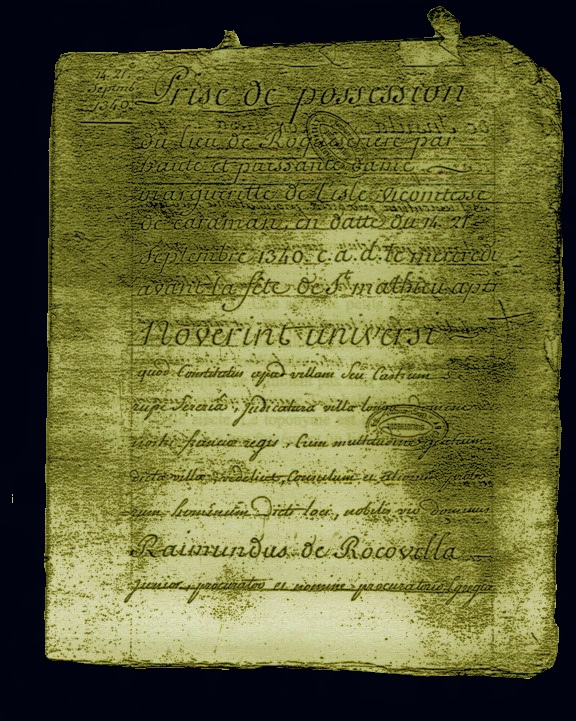 14. 21.e
Septemb.
1340.
Prise de possession
du lieu de Roqueseriere par
haute et puissante dame
margueritte de Lisle, vicomtesse
de caraman, en datte du 14. 21.e
Septembre 1340. c. a. d. le mercredi
avant la fête de St. mathieu apt
Noverint universi
quod Constitutus apud villam seu Castrum
rupe Sereria, Judicatura villa longa, domini
nostri francia regis, Cum multitudine
dicta villa videlicet, Consulum et aliorum
hominum dicti loci, nobilis vir dominus
Raimundus de Rocovilla
junior, procurator et nomine procuratorio